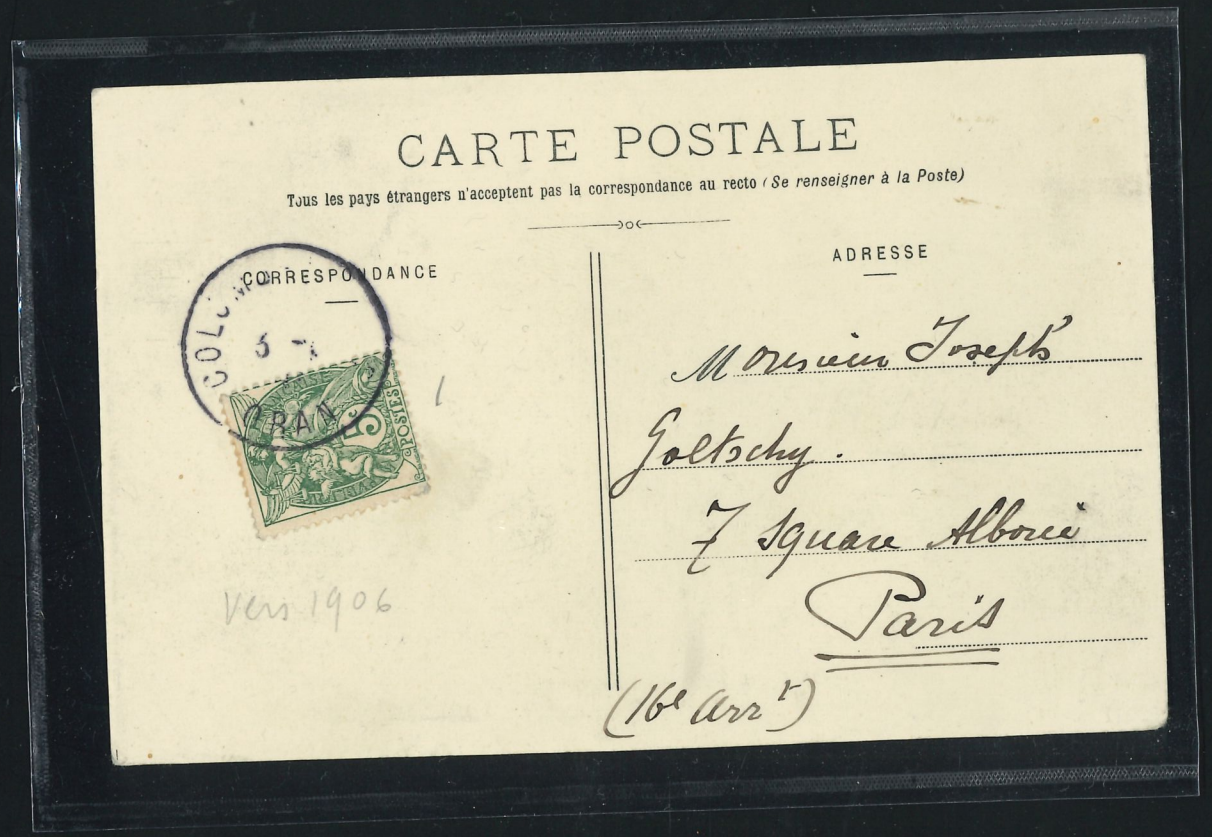 CARTE POSTALE
Tous les pays étrangers n'acceptent pas la correspondance au recto (Se renseigner à la Poste)
CORRESPONDANCE
COLOMB
3
ORAN
5
POSTES
Vers 1906
ADRESSE
Monsieur Joseph
Goltschy.
7 Square Alboni
Paris
(16e Arrt)